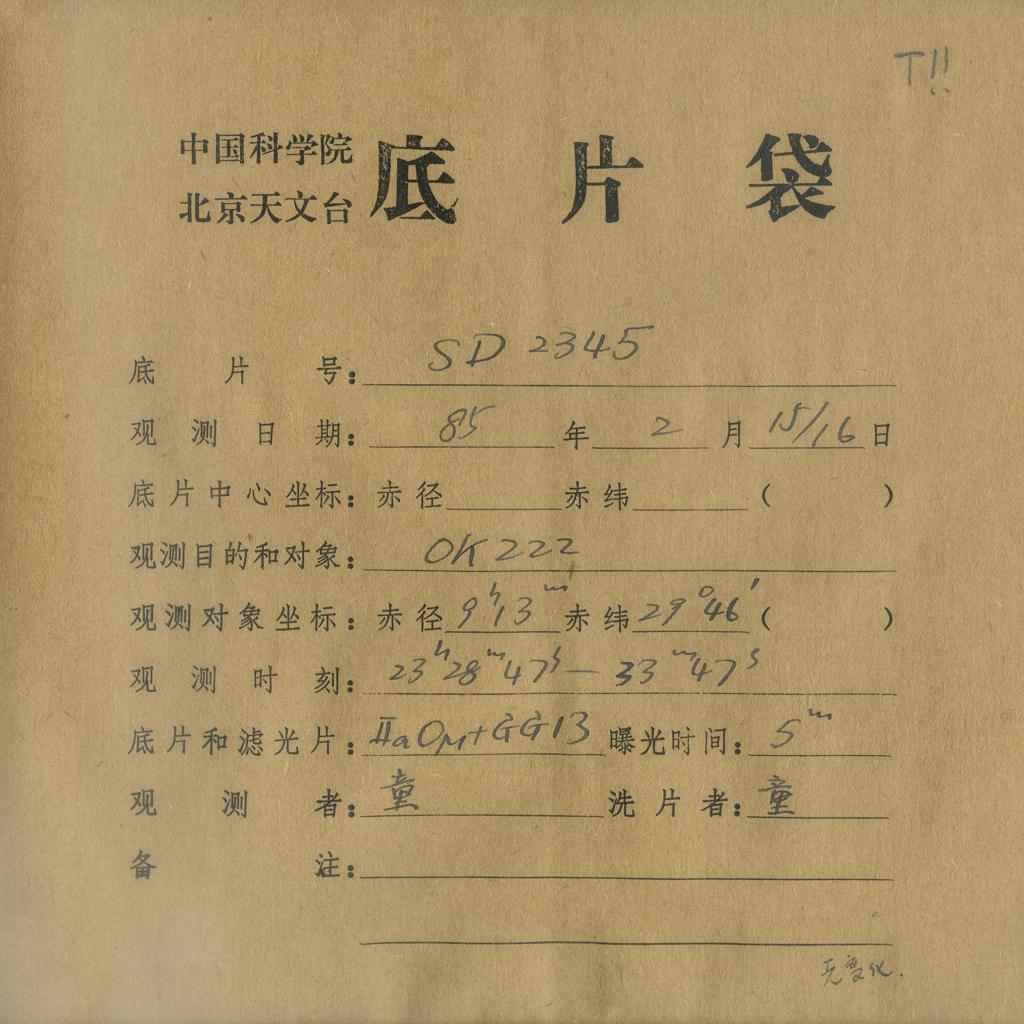 T!!
中国科学院
北京天文台
底片袋
底片号：SD 2345
观测日期：85年2月15/16日
底片中心坐标：赤径 赤纬 ( )
观测目的和对象：OK222
观测对象坐标：赤径9h13m赤纬29°46′( )
观测时刻：23h28m47s—33m47s
底片和滤光片：ⅡaOM+GG13 曝光时间：5m
观测者：童 洗片者：童
备注：
无变化.